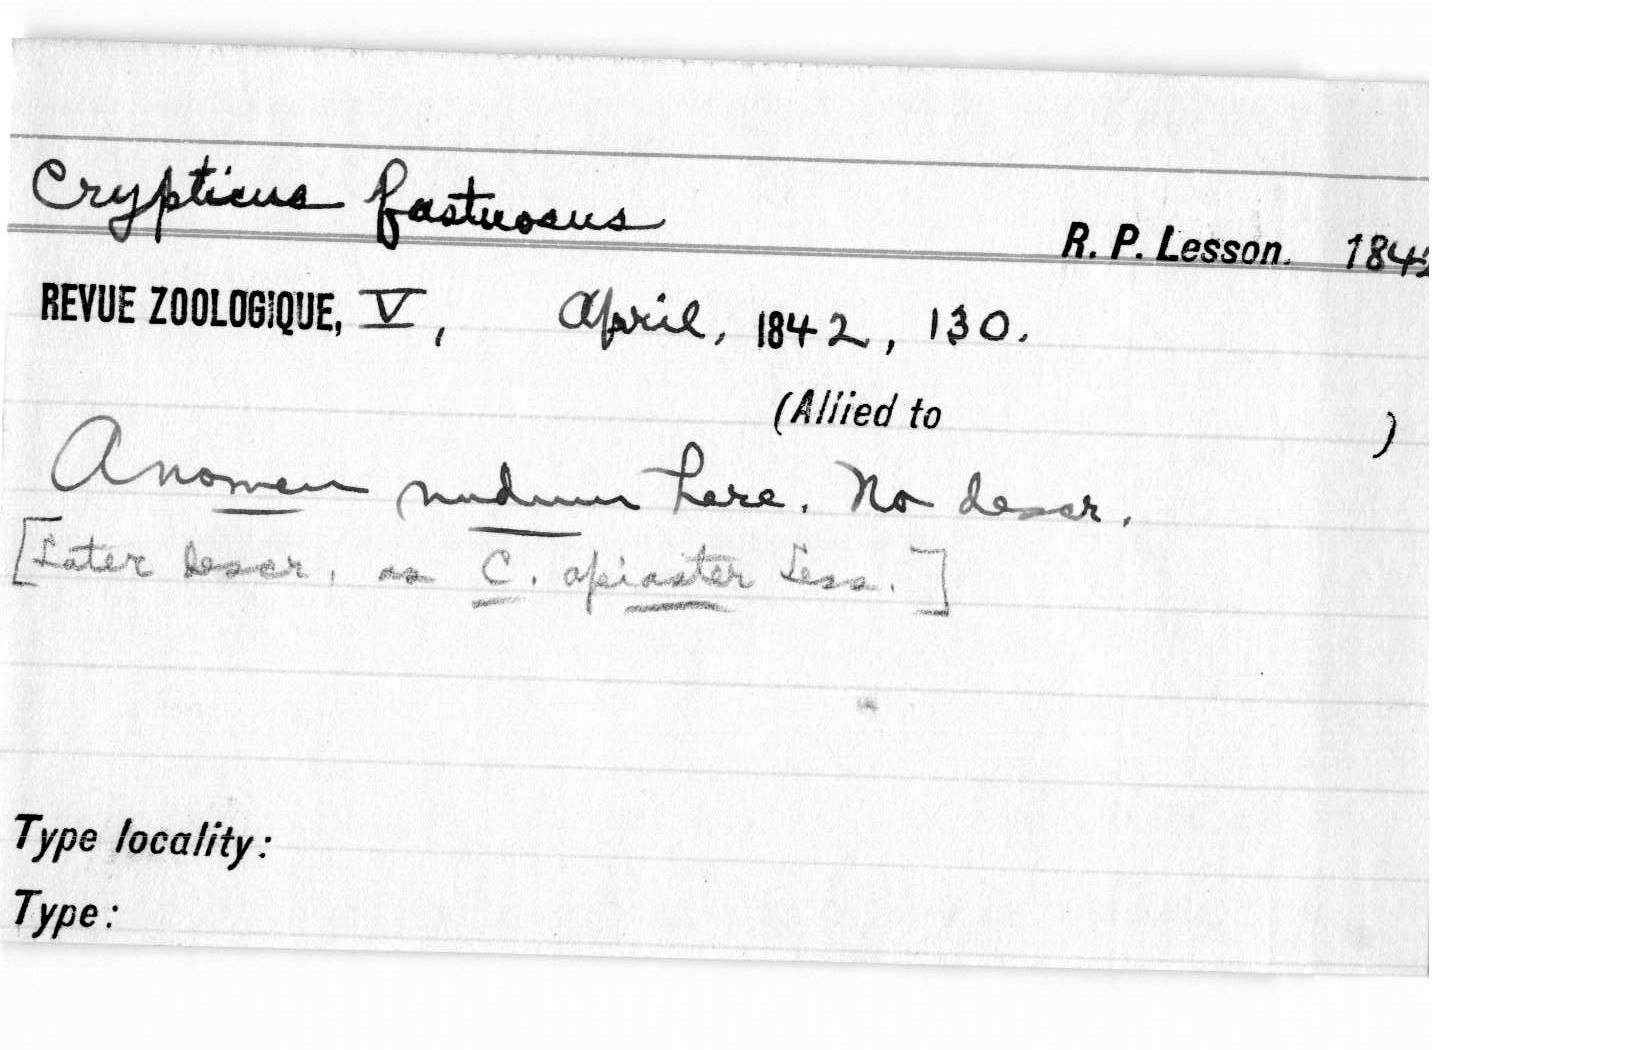 Crypticus fastuosus
R. P. Lesson. 1842
REVUE ZOOLOGIQUE, V, April, 1842, 130.
(Allied to )
A nomen nudum here. No descr.
[Later descr. as C. apiaster Less.]
Type locality:
Type: